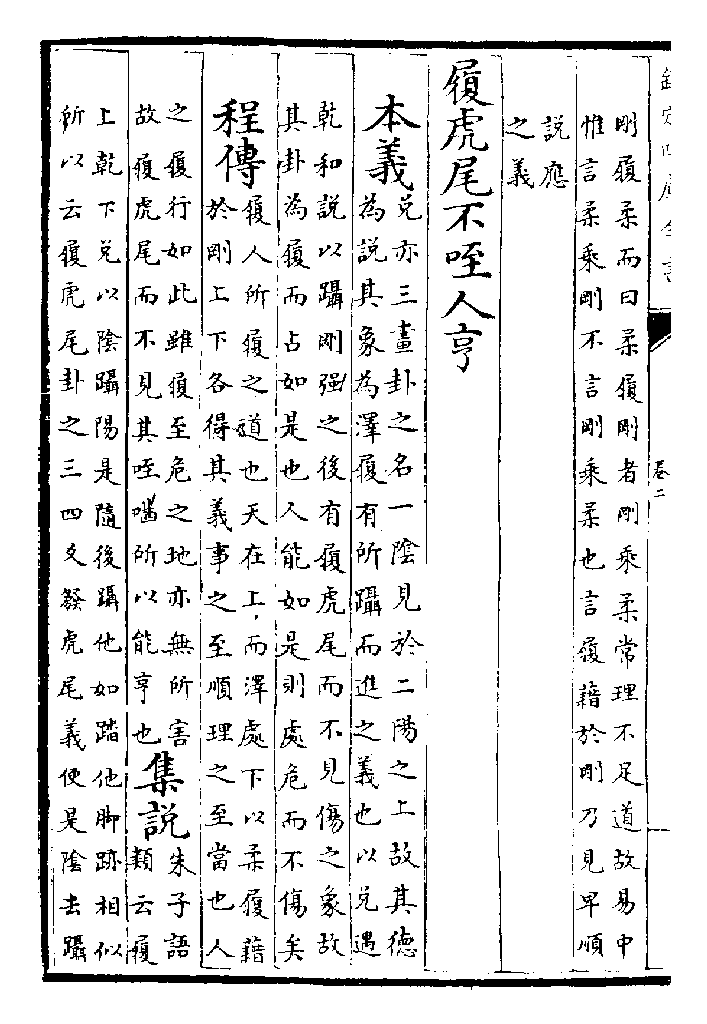 欽定四庫全書
卷二
剛履柔而曰柔履剛者剛乘柔常理不足道故易中
惟言柔乘剛不言剛乘柔也言履藉於剛乃見卑順
説應
之義
履虎尾不咥人亨
本義
兌亦三畫卦之名一陰見於二陽之上故其德
為說其象為澤履有所躡而進之義也以兌遇
乾和說以躡剛强之後有履虎尾而不見傷之象故
其卦為履而占如是也人能如是則處危而不傷矣
程傳
履人所履之道也天在上而澤處下以柔履藉
於剛上下各得其義事之至順理之至當也人
之履行如此雖履至危之地亦無所害
故履虎尾而不見其咥噬所以能亨也
集説
朱子語
類云履
上乾下兌以陰躡陽是隨後躡他如踏他脚跡相似
所以云履虎尾卦之三四爻發虎尾義便是陰去躡